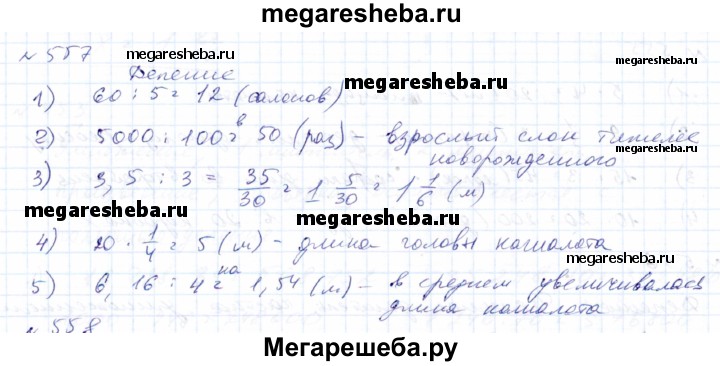 megaresheba.ru
№ 557
megaresheba.ru
megaresheba.ru
Решение
megaresheba.ru
1) 60 : 5 = 12 (салонов)
megaresheba.ru
2) 5000 : 100 = в 50 (раз) – взрослый слон тяжелее
новорожденного
megaresheba.ru
3) 3,5 : 3 = 35/30 = 1 5/30 = 1 1/6 (м)
megaresheba.ru
megaresheba.ru
4) 20 · 1/4 = 5 (м) – длина головы кашалота
megaresheba.ru
5) 6,16 : 4 = на 1,54 (м) – в среднем увеличивалась
длина кашалота
megaresheba.ru
№ 558
Мегарешеба.ру